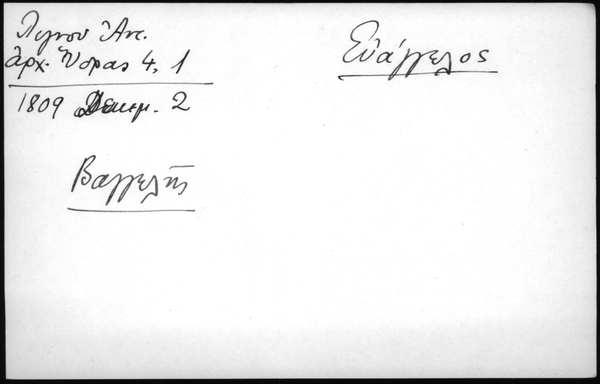 Λιγνου Ἀντ.
ἀρχ. Ὕδρας 4, 1
1809 Δεκεμ. 2
Εὐάγγελος
Βαγγελῆς